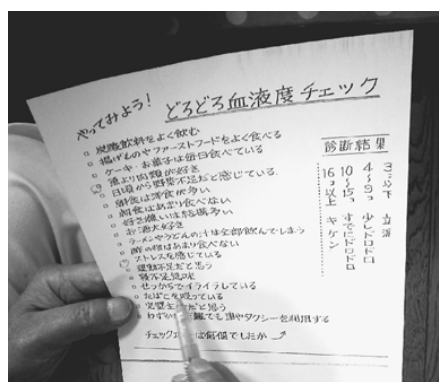 やってみよう!
どろどろ血液度チェック
炭酸飲料をよく飲む
揚げものやファーストフードをよく食べる
ケーキ・お菓子は毎日食べている
魚より肉類が好き
日頃から野菜不足だと感じている
朝食はあまり食べない
好き嫌いは結構多い
お酒大好き
ラーメンやうどんの汁は全部飲んでしまう
酢の物はあまり食べない
ストレスを感じている
運動不足だと思う
寝不足気味
せっかちでイライラしている
たばこを吸っている
だと思う
でも車やタクシーを利用する
チェック
は何個でしたか
診断結果
3つ以下
4〜9つ 少しドロドロ
10〜15つ すでにドロドロ
16つ以上 キケン